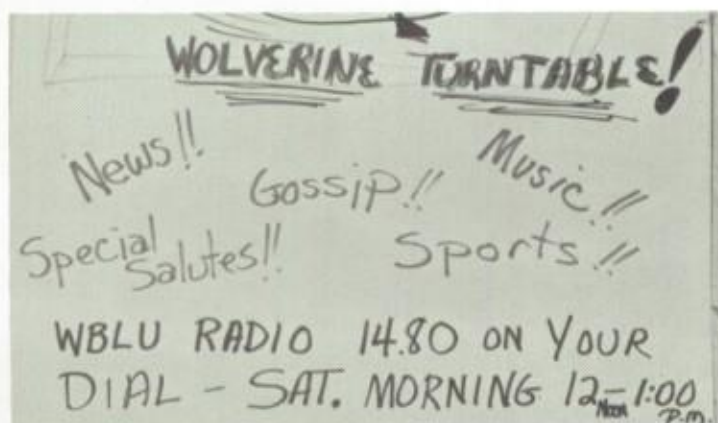 WOLVERINE TURNTABLE!
News!! Gossip!! Music!!
Special Salutes!! Sports!!
WBLU RADIO 14.80 ON YOUR
DIAL - SAT. MORNING 12 NOON - 1:00 P.M.